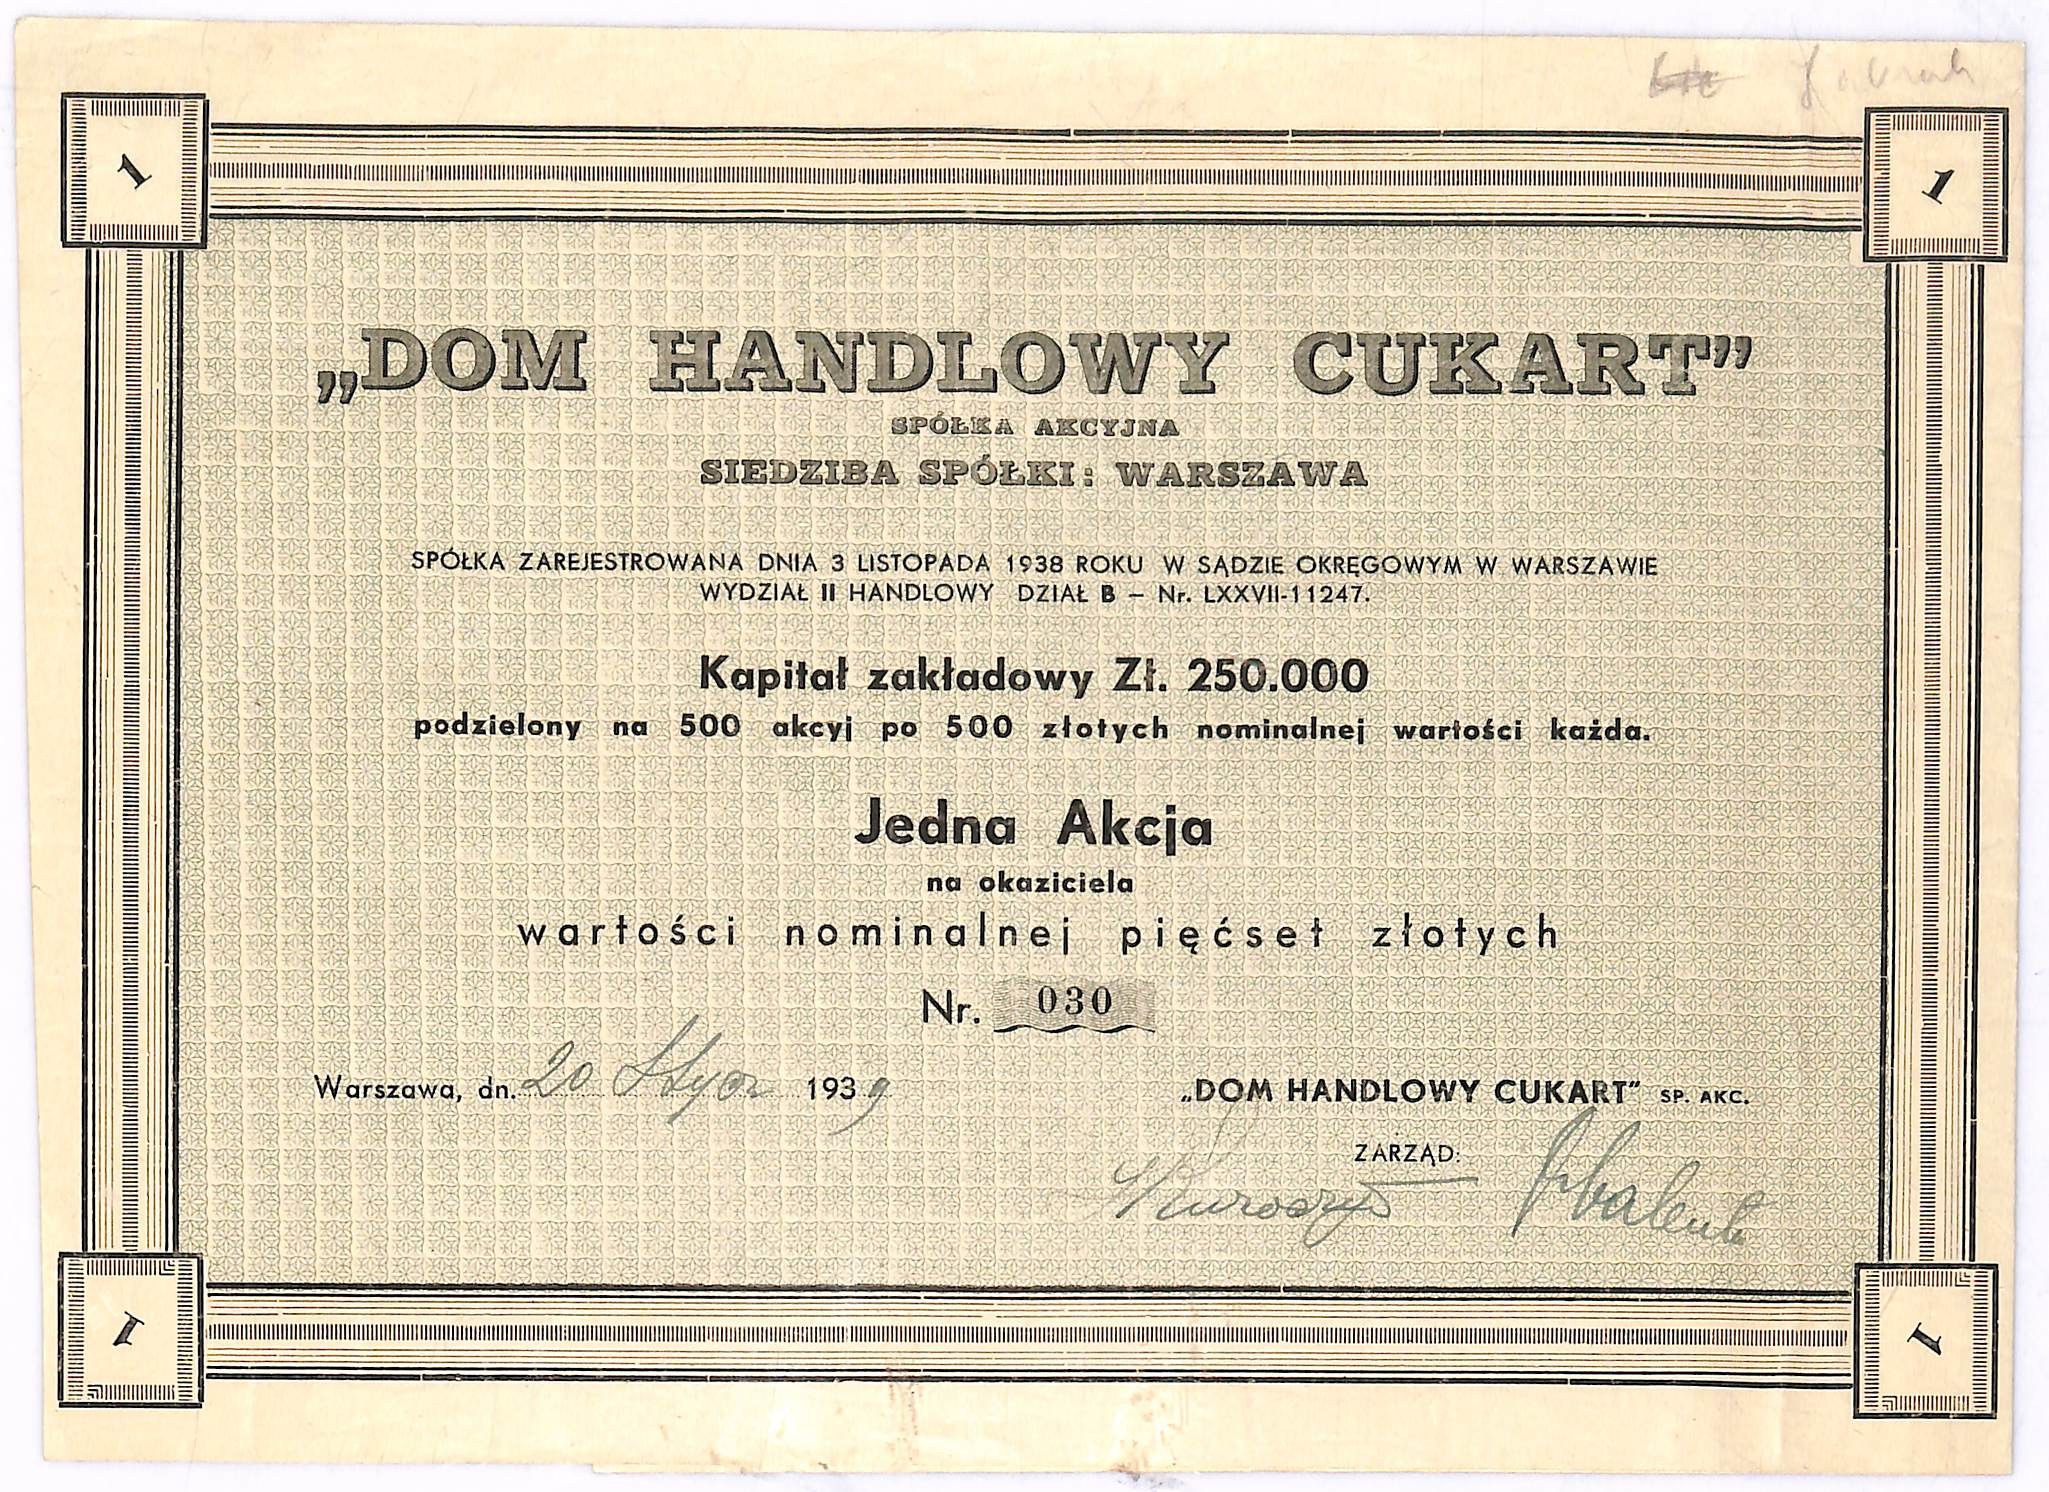 1 1
„DOM HANDLOWY CUKART”
SPÓŁKA AKCYJNA
SIEDZIBA SPÓŁKI: WARSZAWA
SPÓŁKA ZAREJESTROWANA DNIA 3 LISTOPADA 1938 ROKU W SĄDZIE OKRĘGOWYM W WARSZAWIE
WYDZIAŁ II HANDLOWY DZIAŁ B – Nr. LXXVII-11247.
Kapitał zakładowy Zł. 250.000
podzielony na 500 akcyj po 500 złotych nominalnej wartości każda.
Jedna Akcja
na okaziciela
wartości nominalnej pięćset złotych
Nr. 030
Warszawa, dn. 20 Stycz 1939
„DOM HANDLOWY CUKART” SP. AKC.
ZARZĄD:
1 1